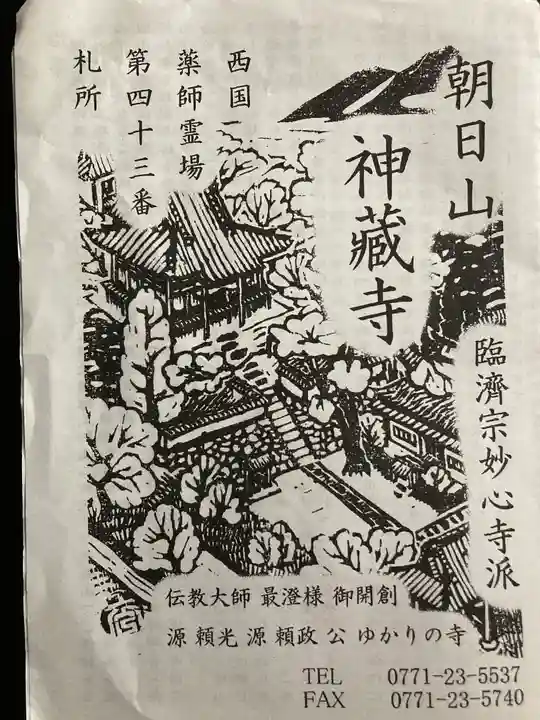 朝日山
神藏寺
臨濟宗妙心寺派
西国
薬師霊場
第四十三番
札所
伝教大師 最澄様 御開創
源 頼光 源 頼政 公 ゆかりの寺
TEL 0771-23-5537
FAX 0771-23-5740